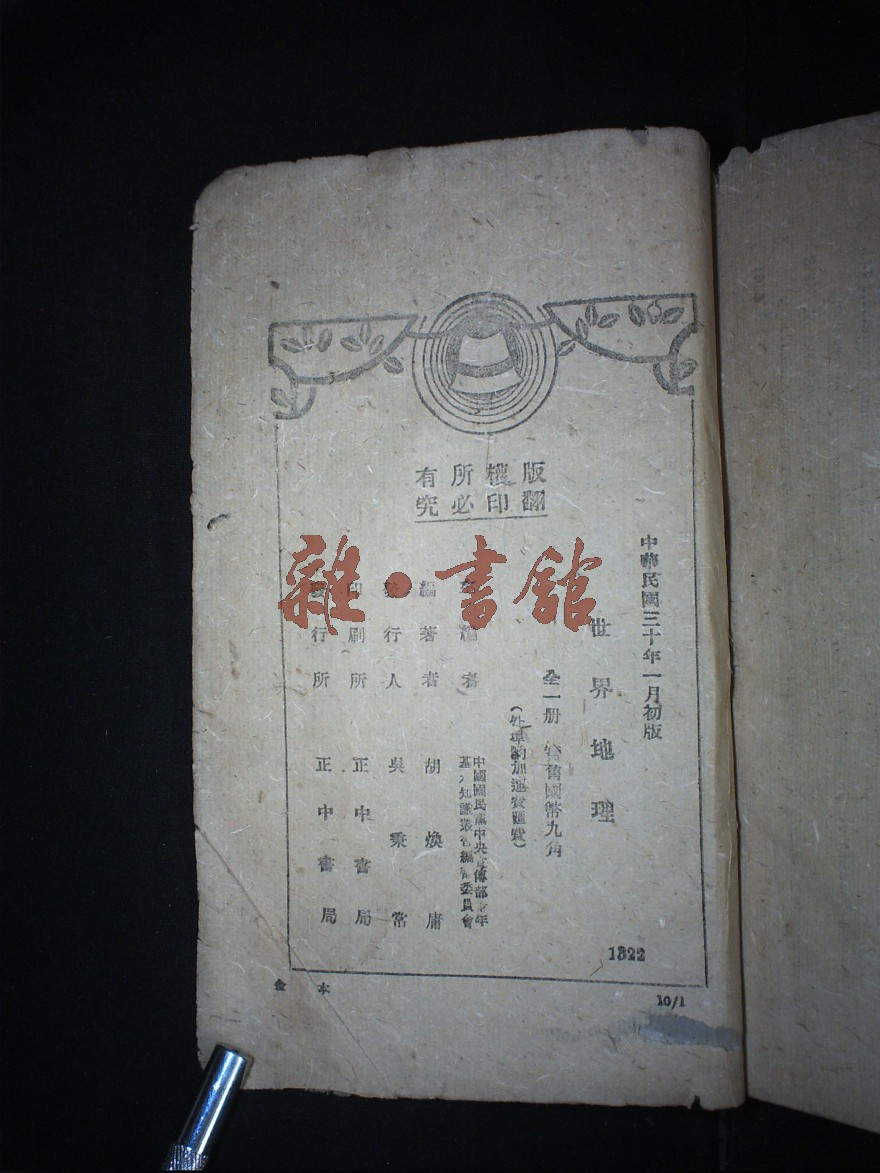 版權所有
翻印必究
中華民國三十年一月初版
世界地理
全一册 實售國幣九角
(外埠酌加運費匯費)
主編者 中國國民黨中央宣傳部青年
基本知識叢書編審委員會
編著者 胡煥庸
發行人 吳秉常
印刷所 正中書局
發行所 正中書局
1322
10/1
本
雜·書舘